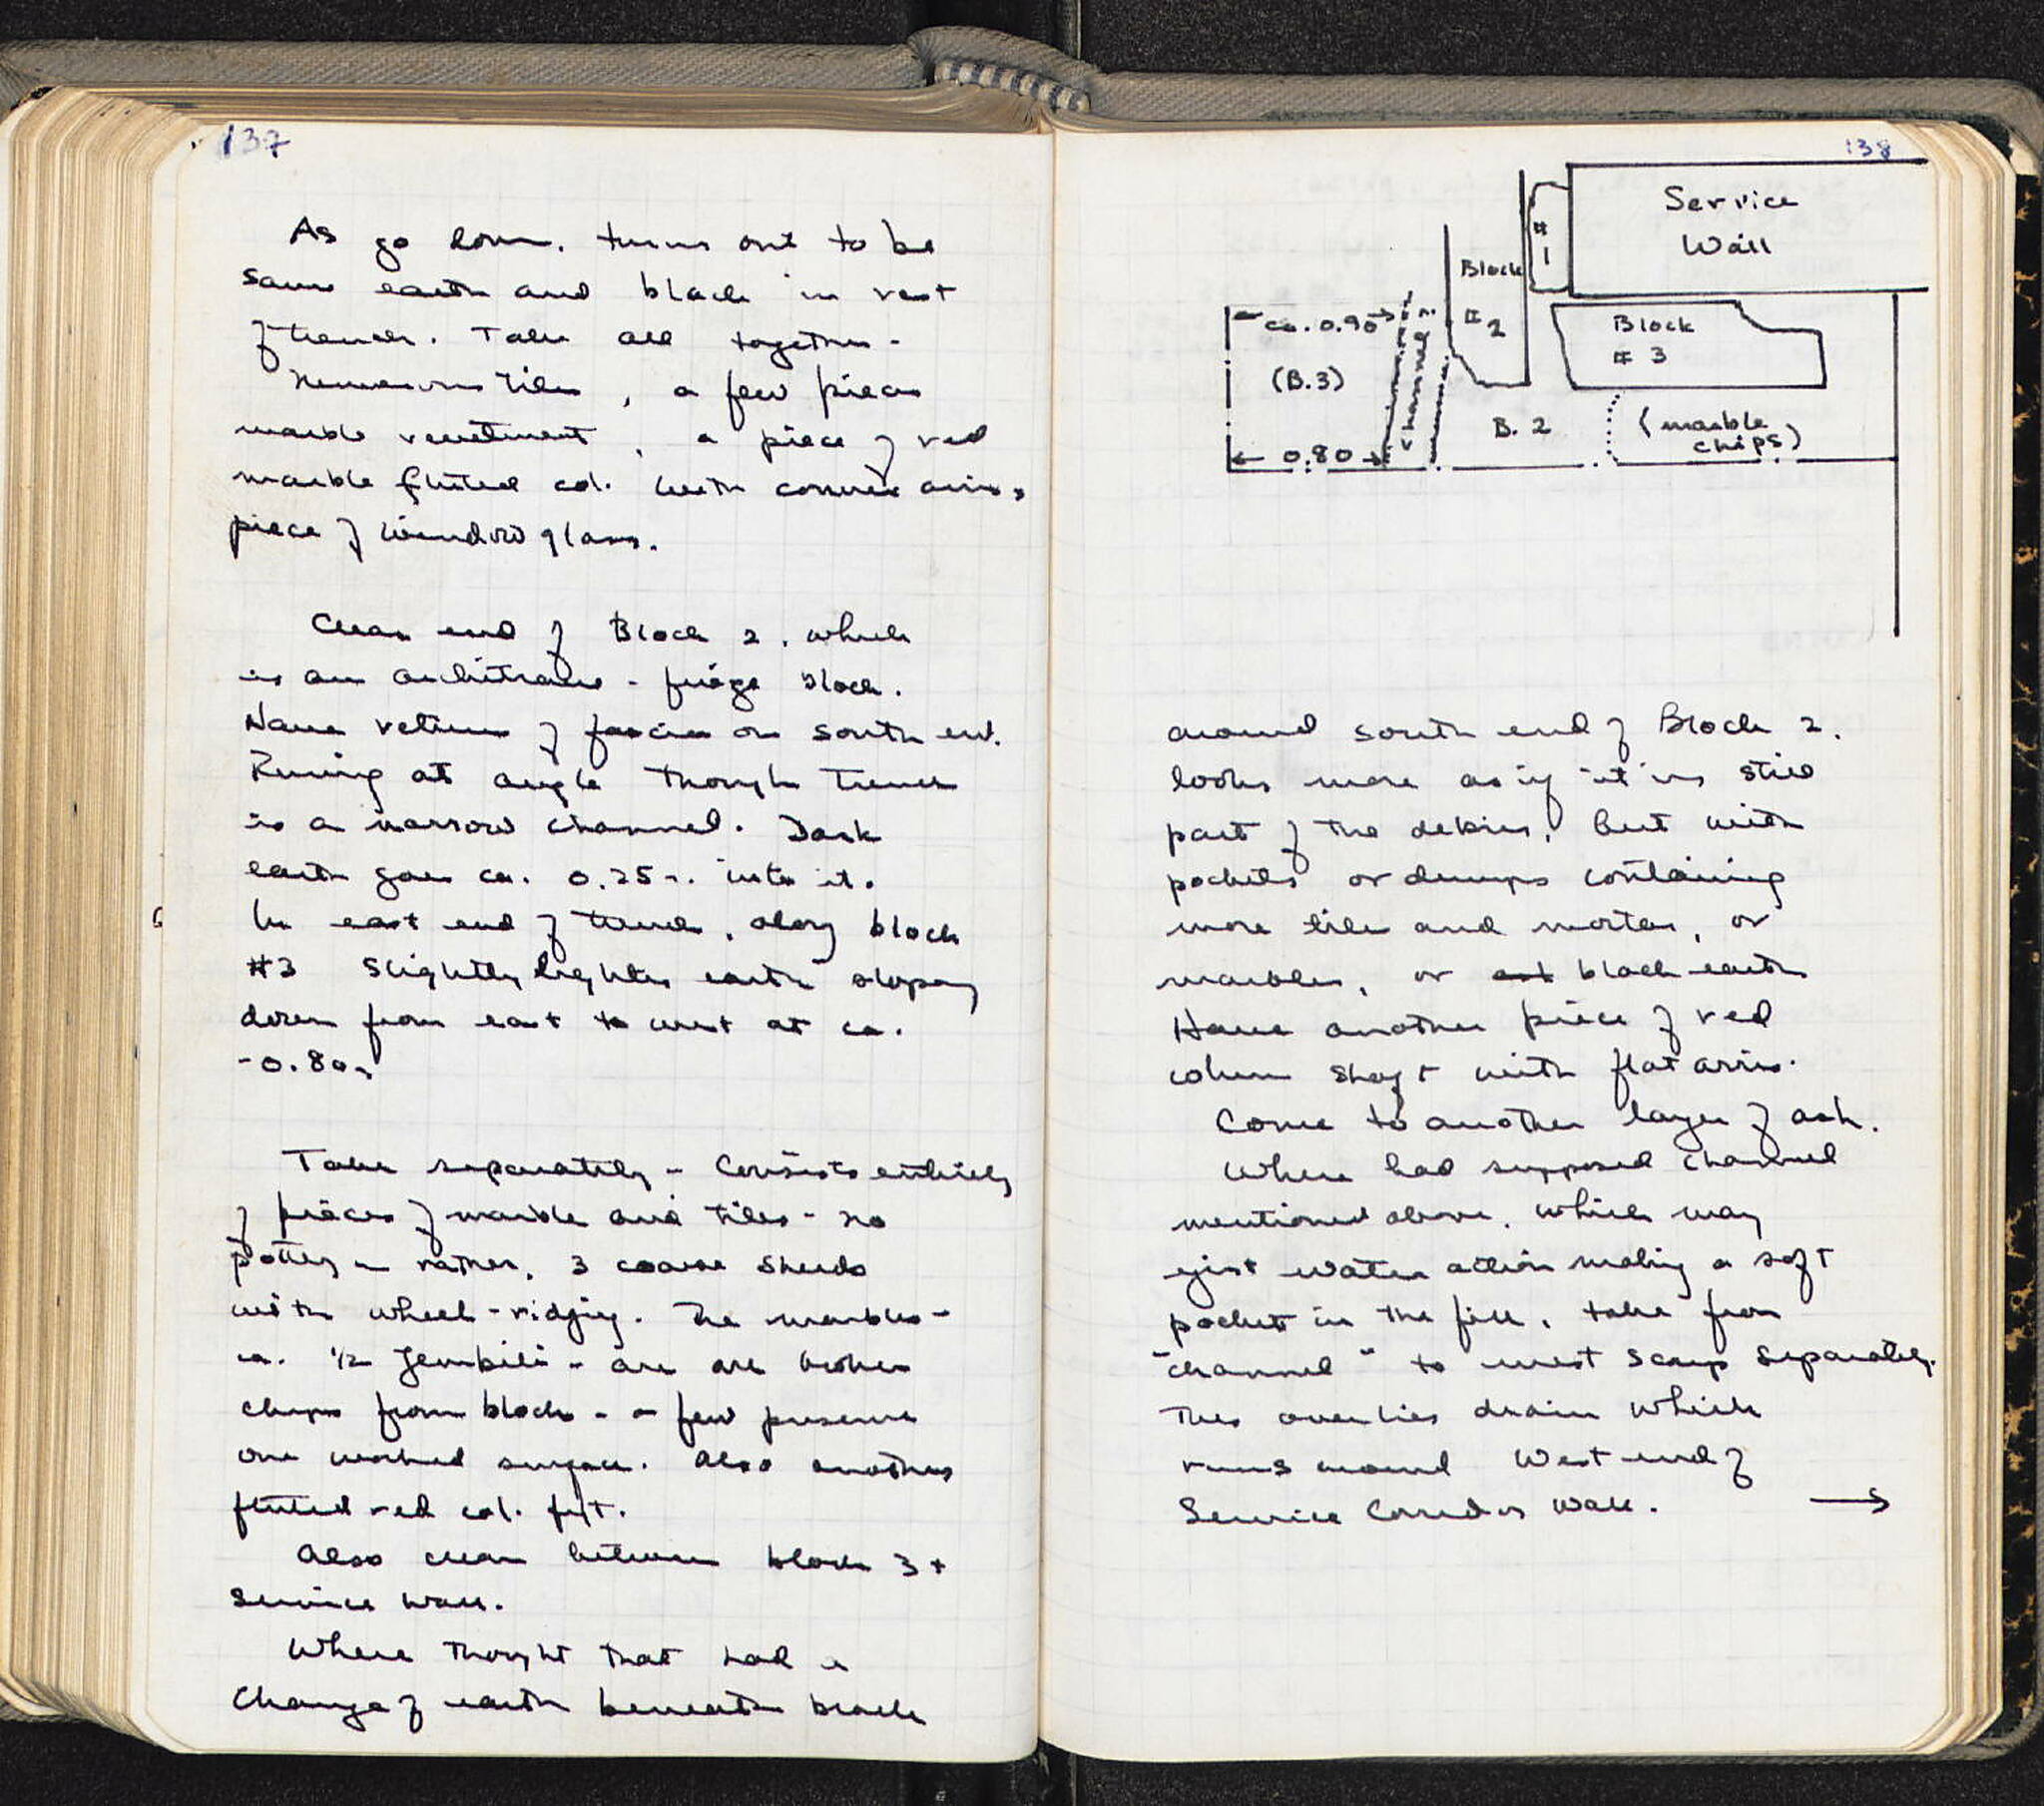 137
As go down, turns out to be
same earth and black in rest
of trench. Take all together.
Numerous tiles, a few pieces
marble revetment, a piece of red
marble fluted col. with convex arris,
piece of window glass.
Clean end of Block 2, which
is an architrave - frieze block.
Have return of fascia on south end.
Runing at angle through trench
is a narrow channel. Dark
earth goes ca. 0.25 m. into it.
In east end of trench, along block
#3 slightly lighter earth sloping
down from east to west at ca.
-0.80m
Take separately - Consists entirely
of pieces of marble and tiles - no
pottery - rather, 3 coarse sherds
with wheel-ridging. The marbles -
ca. 1/2 zembili - are all broken
chips from blocks - a few preserve
one worked surface. Also another
fluted red col. fgt.
Also clean between block 3 +
Service wall.
Where thought that had a
change of earth beneath black
138
Service
Wall
#
1
Block
#
2
Block
# 3
ca. 0.90
channel ?
(B.3)
B. 2
(marble
chips)
0.80
around south end of Block 2,
looks more as if it is still
part of the debris, but with
pockets or dumps containing
more tile and mortar, or
marbles, or black earth
Have another piece of red
column shaft with flat arris.
Come to another layer of ash.
Where had supposed channel
mentioned above, which may
just water action making a soft
pocket in the fill, take from
"channel" to west scarp separately.
This overlies drain which
runs around West end of
Service Corridor Wall. →